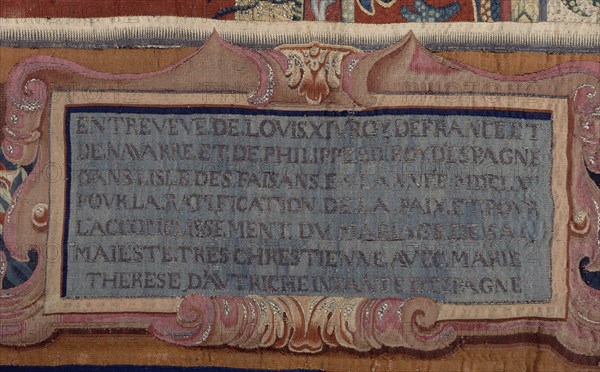 ENTREVEVE.DE.LOVIS XIV ROY.DE FRANCE ET
DE NAVARRE.ET.DE.PHILIPPE ROY.DESPAGNE
DANS LISLE.DES.FAISANS.EN LANNEE MDCLX
POVR.LA.RATIFICATION.DE.LA.PAIX.ET.POVR
LACCOMPLISSEMENT.DV.MARIAGE.DE.SA
MAIESTE.TRES CHRESTIENNE.AVEC.MARIE
THERESE D'AVTRICHE INFANTE DESPAGNE